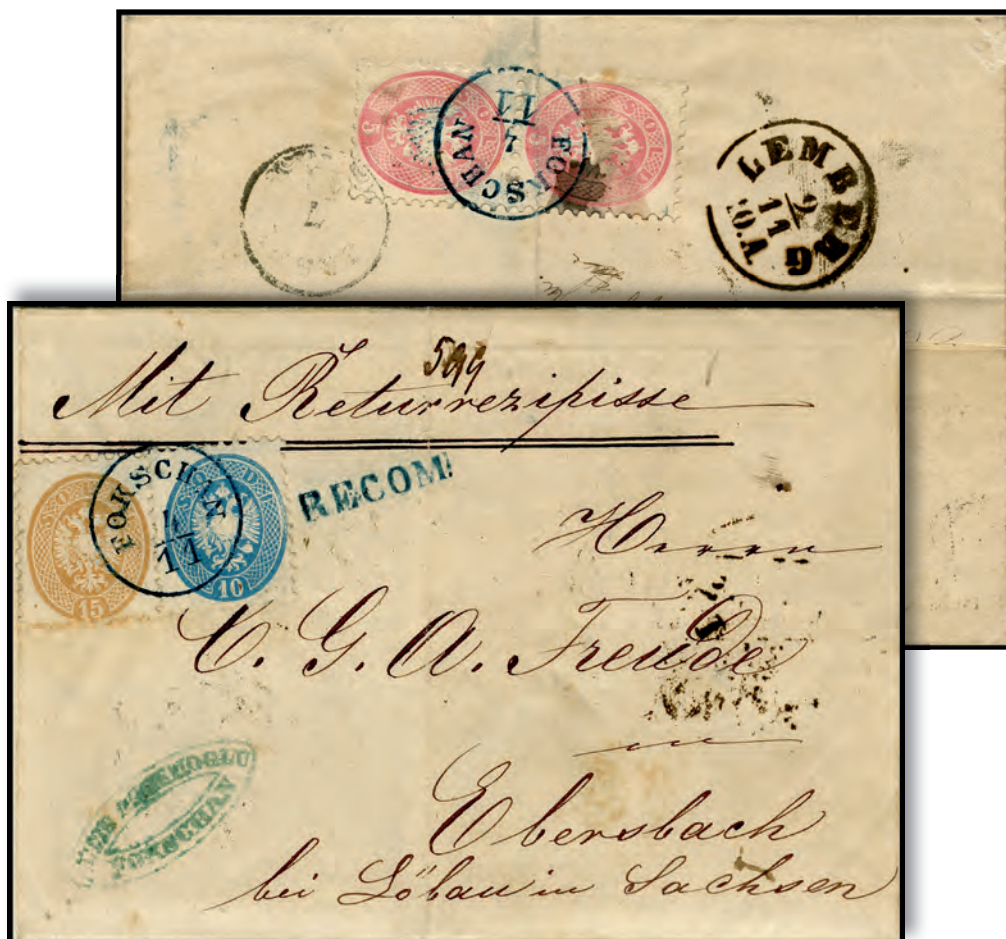 5
5
FOKSCHAN
4
11
LEMBERG
9
11
10.V.
7
599
Mit Returrezipisse
FOKSCHAN
4
11
15
10
RECOM:
Herrn
C. G. A. Freude
in
Ebersbach
bei Löbau in Sachsen
FOKSCHAN